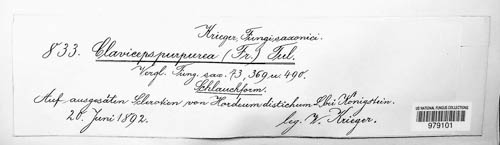 Krieger, Fungi saxonici.
833. Claviceps purpurea (Fr.) Tul.
Vergl. Fung. sax. 73, 369 u. 490.
Schlauchform.
Auf ausgesäten Sclerotien von Hordeum distichum L. bei Königstein.
20. Juni 1892. leg. W. Krieger.
US NATIONAL FUNGUS COLLECTIONS
979101